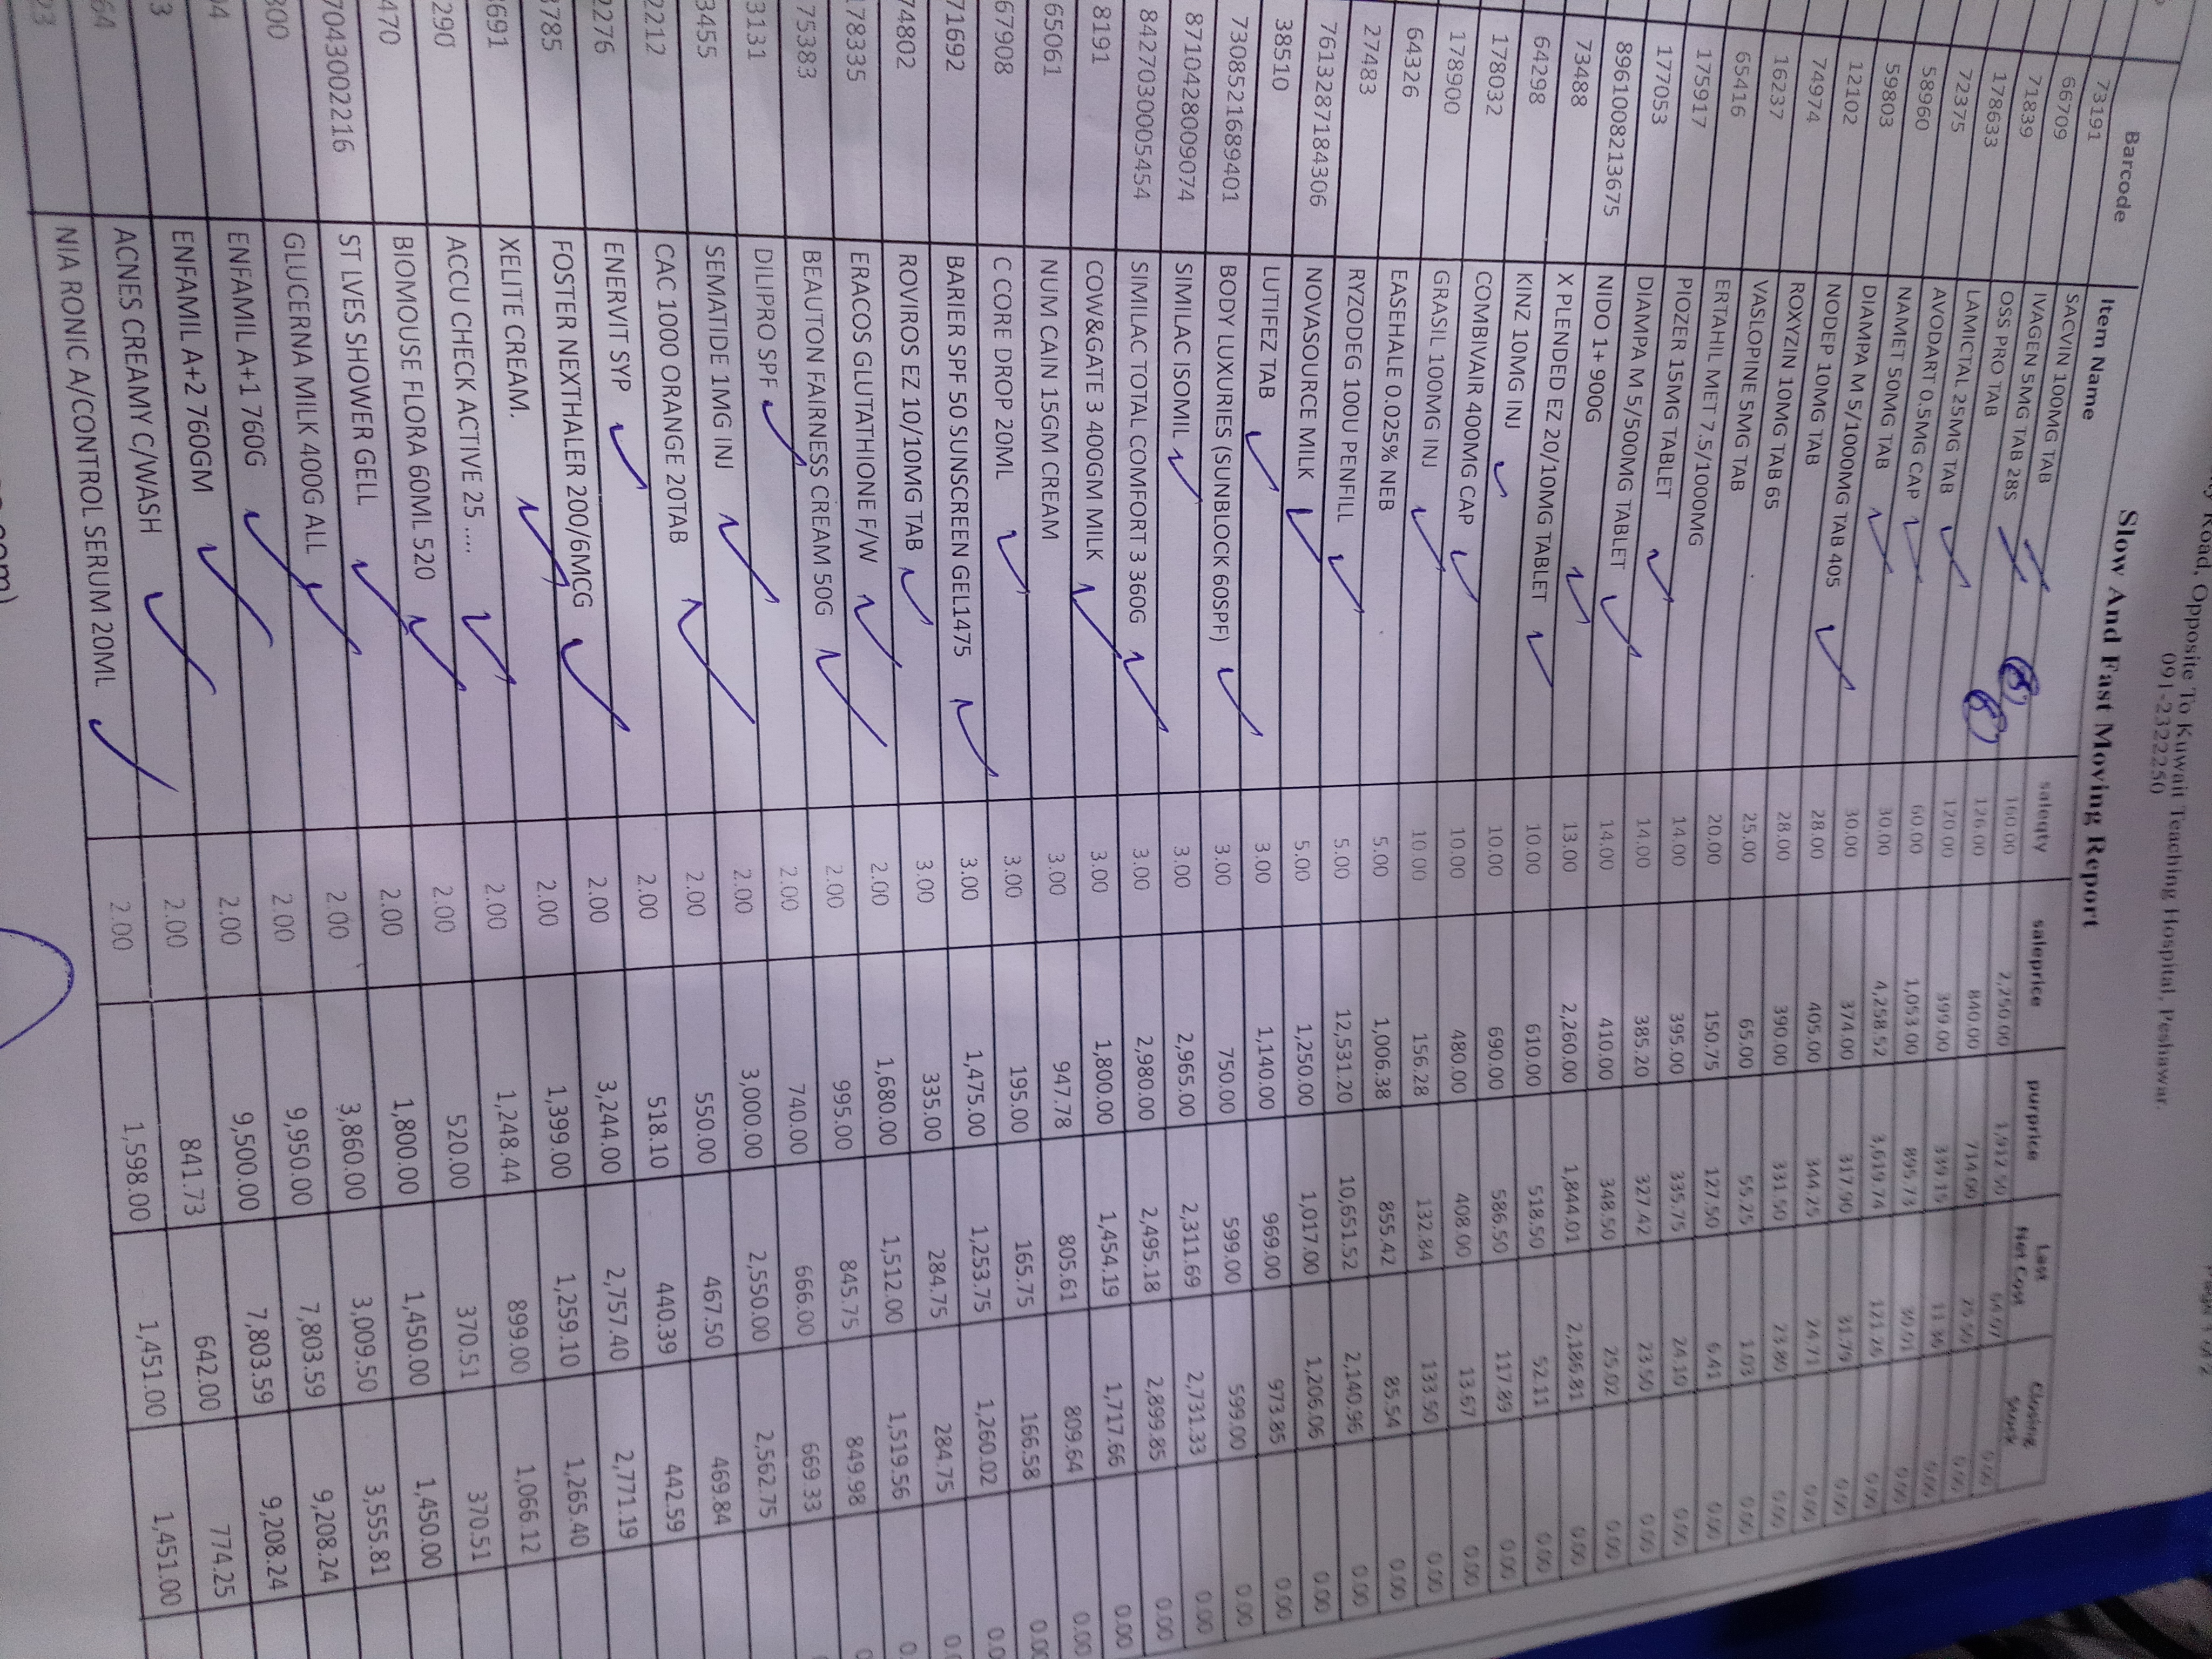 Road, Opposite To Kuwait Teaching Hospital, Peshawar.
091-2322250
Slow And Fast Moving Report
Barcode Item Name saleqty saleprice purprice Last Net Cost Closing Stock
73191 SACVIN 100MG TAB 160.00 2,250.00 1,912.50 0.00
66709 IVAGEN 5MG TAB 28S 126.00 840.00 714.00 0.00
71839 OSS PRO TAB 120.00 399.00 339.15 0.00
178633 LAMICTAL 25MG TAB 60.00 1,053.00 0.00
72375 AVODART 0.5MG CAP 30.00 4,258.52 3,619.74 121.26 0.00
58960 NAMET 50MG TAB 30.00 374.00 317.90 31.79 0.00
59803 DIAMPA M 5/1000MG TAB 405 28.00 405.00 344.25 24.71 0.00
12102 NODEP 10MG TAB 28.00 390.00 331.50 23.80 0.00
74974 ROXYZIN 10MG TAB 65 25.00 65.00 55.25 1.03 0.00
16237 VASLOPINE 5MG TAB 20.00 150.75 127.50 6.41 0.00
65416 ERTAHIL MET 7.5/1000MG 14.00 395.00 335.75 24.10 0.00
175917 PIOZER 15MG TABLET 14.00 385.20 327.42 23.50 0.00
177053 DIAMPA M 5/500MG TABLET 14.00 410.00 348.50 25.02 0.00
8961008213675 NIDO 1+ 900G 13.00 2,260.00 1,844.01 2,186.81 0.00
73488 X PLENDED EZ 20/10MG TABLET 10.00 610.00 518.50 52.11 0.00
64298 KINZ 10MG INJ 10.00 690.00 586.50 117.89 0.00
178032 COMBIVAIR 400MG CAP 10.00 480.00 408.00 13.67 0.00
178900 GRASIL 100MG INJ 10.00 156.28 132.84 133.50 0.00
64326 EASEHALE 0.025% NEB 5.00 1,006.38 855.42 85.54 0.00
27483 RYZODEG 100U PENFILL 5.00 12,531.20 10,651.52 2,140.96 0.00
7613287184306 NOVASOURCE MILK 5.00 1,250.00 1,017.00 1,206.06 0.00
38510 LUTIFEZ TAB 3.00 1,140.00 969.00 973.85 0.00
7308521689401 BODY LUXURIES (SUNBLOCK 60SPF) 3.00 750.00 599.00 599.00 0.00
8710428009074 SIMILAC ISOMIL 3.00 2,965.00 2,311.69 2,731.33 0.00
8427030005454 SIMILAC TOTAL COMFORT 3 360G 3.00 2,980.00 2,495.18 2,899.85 0.00
8191 COW&GATE 3 400GM MILK 3.00 1,800.00 1,454.19 1,717.66 0.00
65061 NUM CAIN 15GM CREAM 3.00 947.78 805.61 809.64 0.00
67908 C CORE DROP 20ML 3.00 195.00 165.75 166.58 0.00
71692 BARIER SPF 50 SUNSCREEN GEL1475 3.00 1,475.00 1,253.75 1,260.02 0.0
74802 ROVIROS EZ 10/10MG TAB 3.00 335.00 284.75 284.75 0.0
178335 ERACOS GLUTATHIONE F/W 2.00 1,680.00 1,512.00 1,519.56 0.
75383 BEAUTON FAIRNESS CREAM 50G 2.00 995.00 845.75 849.98 0
3131 DILIPRO SPF 2.00 740.00 666.00 669.33
3455 SEMATIDE 1MG INJ 2.00 3,000.00 2,550.00 2,562.75
2212 CAC 1000 ORANGE 20TAB 2.00 550.00 467.50 469.84
2276 ENERVIT SYP 2.00 518.10 440.39 442.59
785 FOSTER NEXTHALER 200/6MCG 2.00 3,244.00 2,757.40 2,771.19
691 XELITE CREAM. 2.00 1,399.00 1,259.10 1,265.40
290 ACCU CHECK ACTIVE 25 .... 2.00 1,248.44 899.00 1,066.12
470 BIOMOUSE FLORA 60ML 520 2.00 520.00 370.51 370.51
7043002216 ST LVES SHOWER GELL 2.00 1,800.00 1,450.00 1,450.00
800 GLUCERNA MILK 400G ALL 2.00 3,860.00 3,009.50 3,555.81
04 ENFAMIL A+1 760G 2.00 9,950.00 7,803.59 9,208.24
3 ENFAMIL A+2 760GM 2.00 9,500.00 7,803.59 9,208.24
64 ACNES CREAMY C/WASH 2.00 841.73 642.00 774.25
23 NIA RONIC A/CONTROL SERUM 20ML 2.00 1,598.00 1,451.00 1,451.00